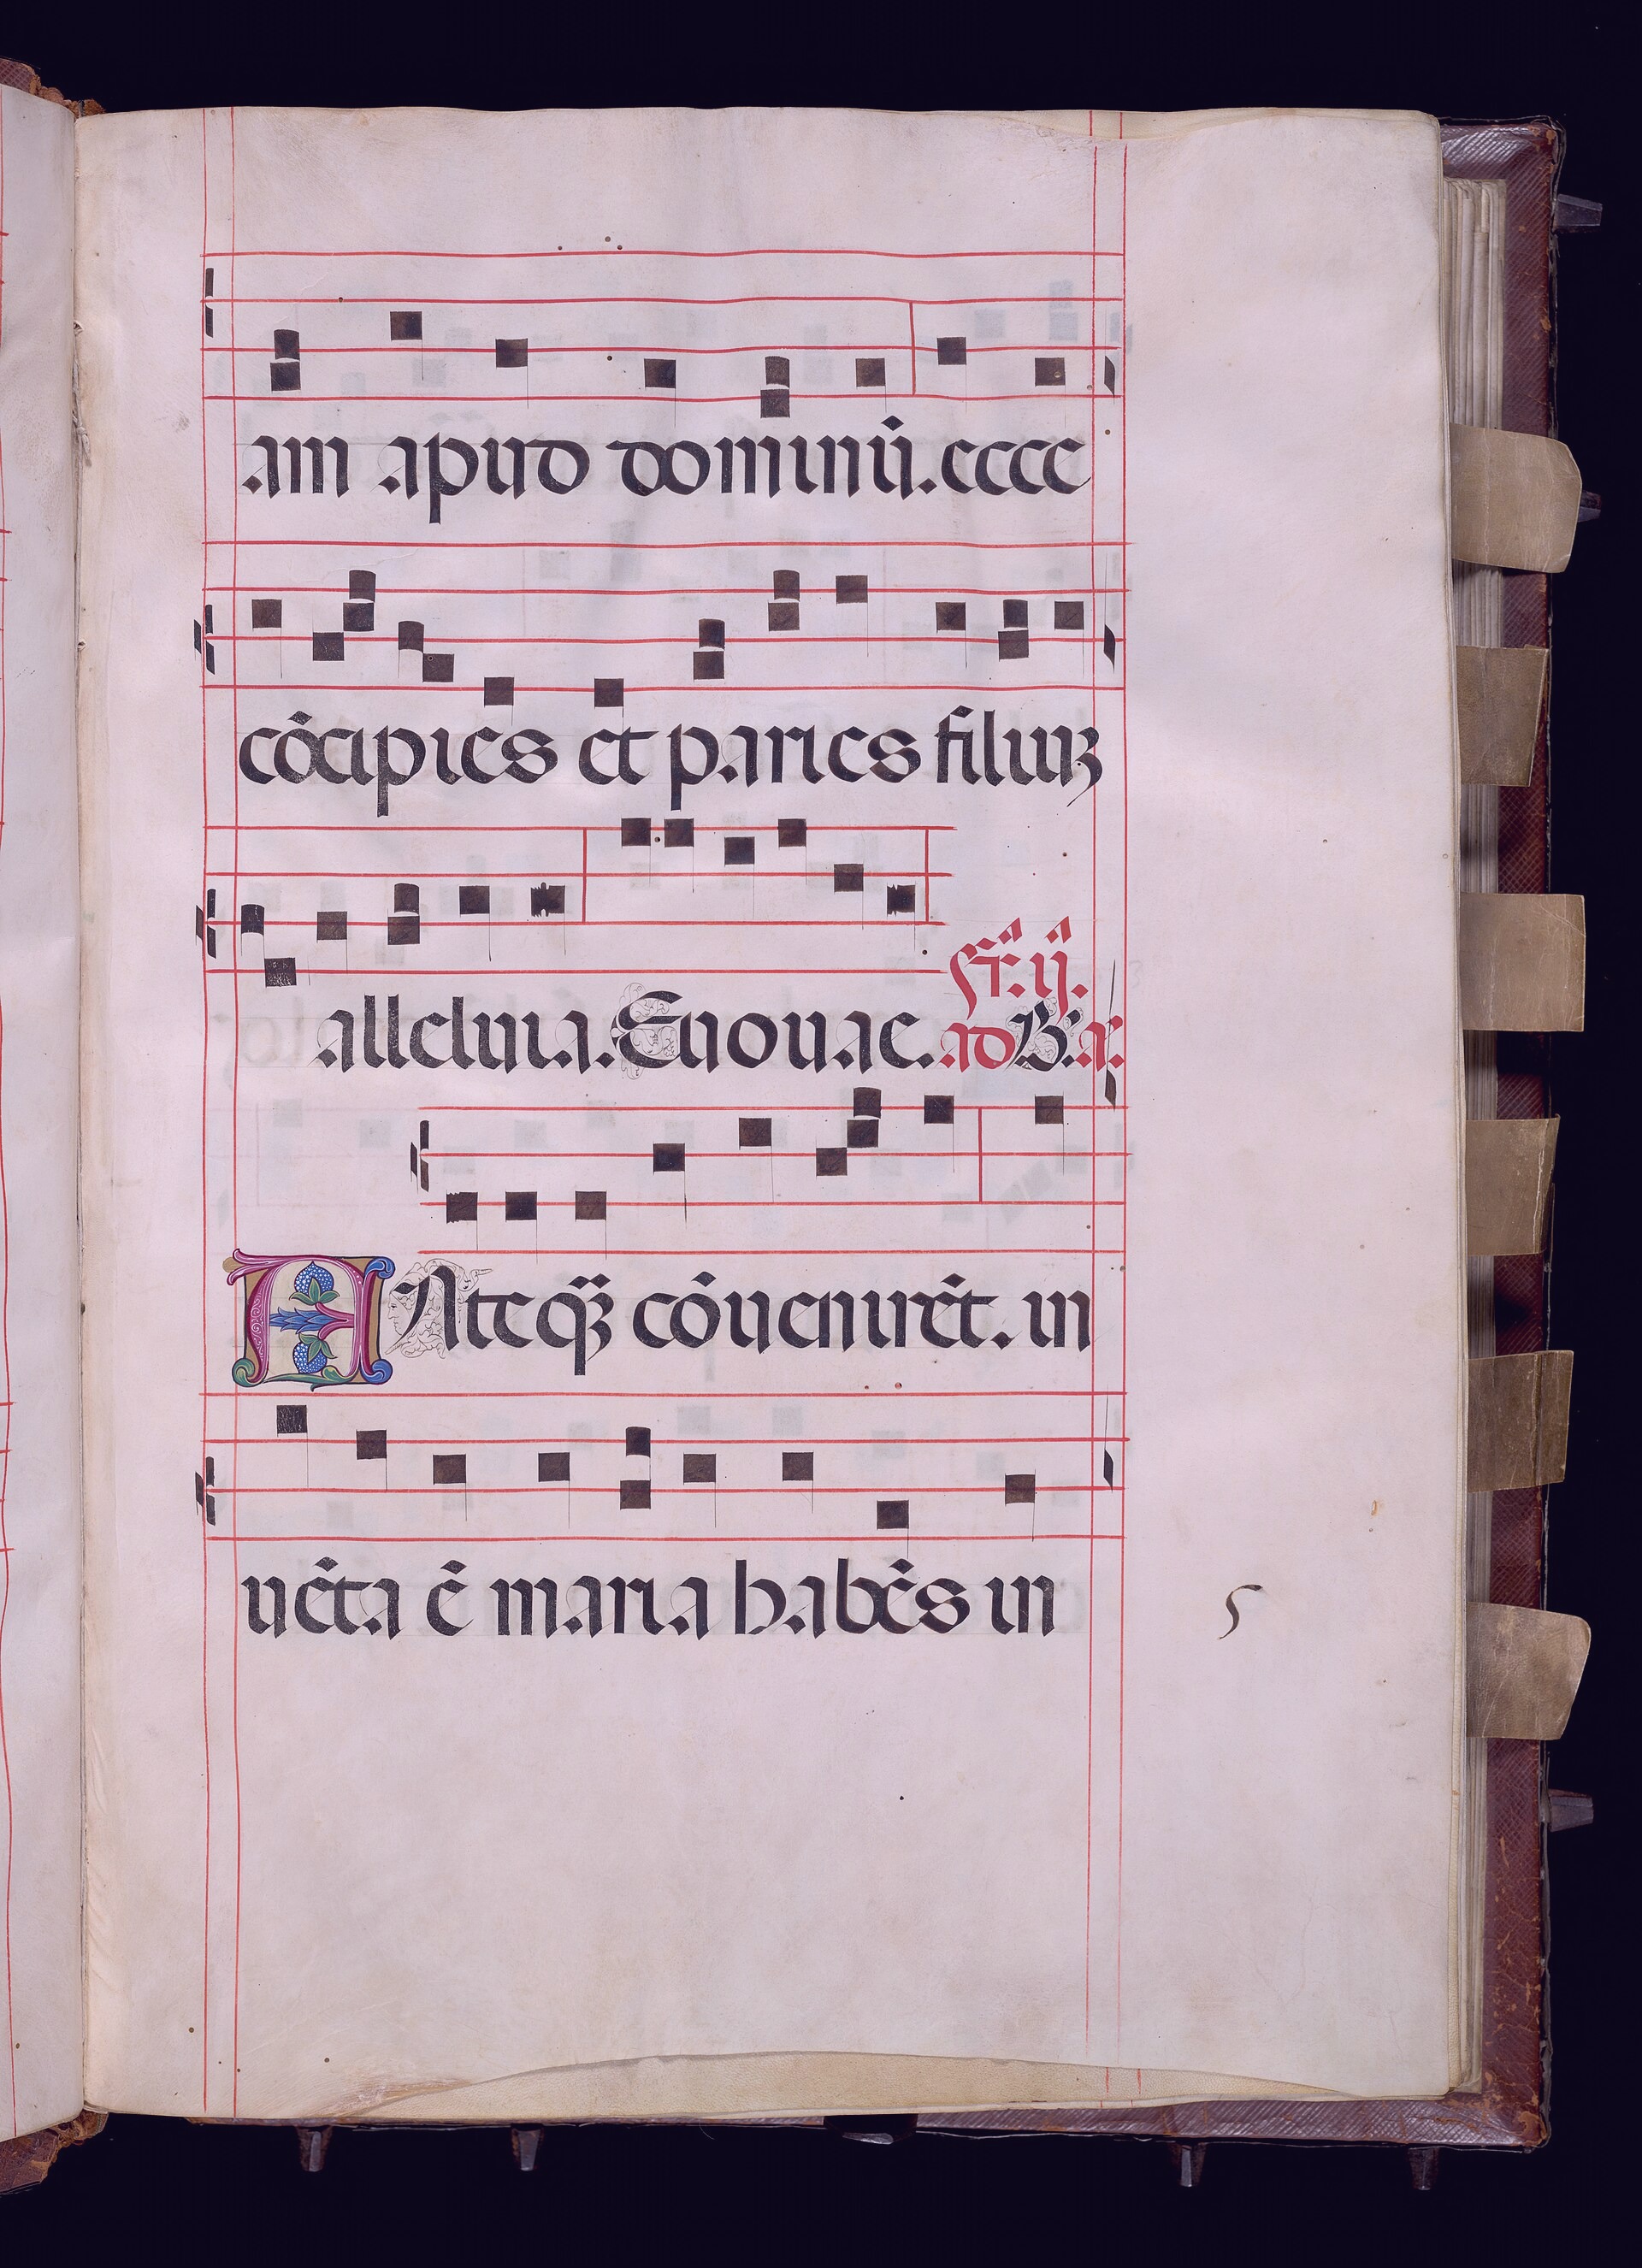 am apud dominū. ecce
cōcipies et paries filiuʒ
alleluia. Euouae. fr̃. ij.
ad B. a.
ANteqʒ̃ cōuenirēt. in
uēta ē maria habēs in
5